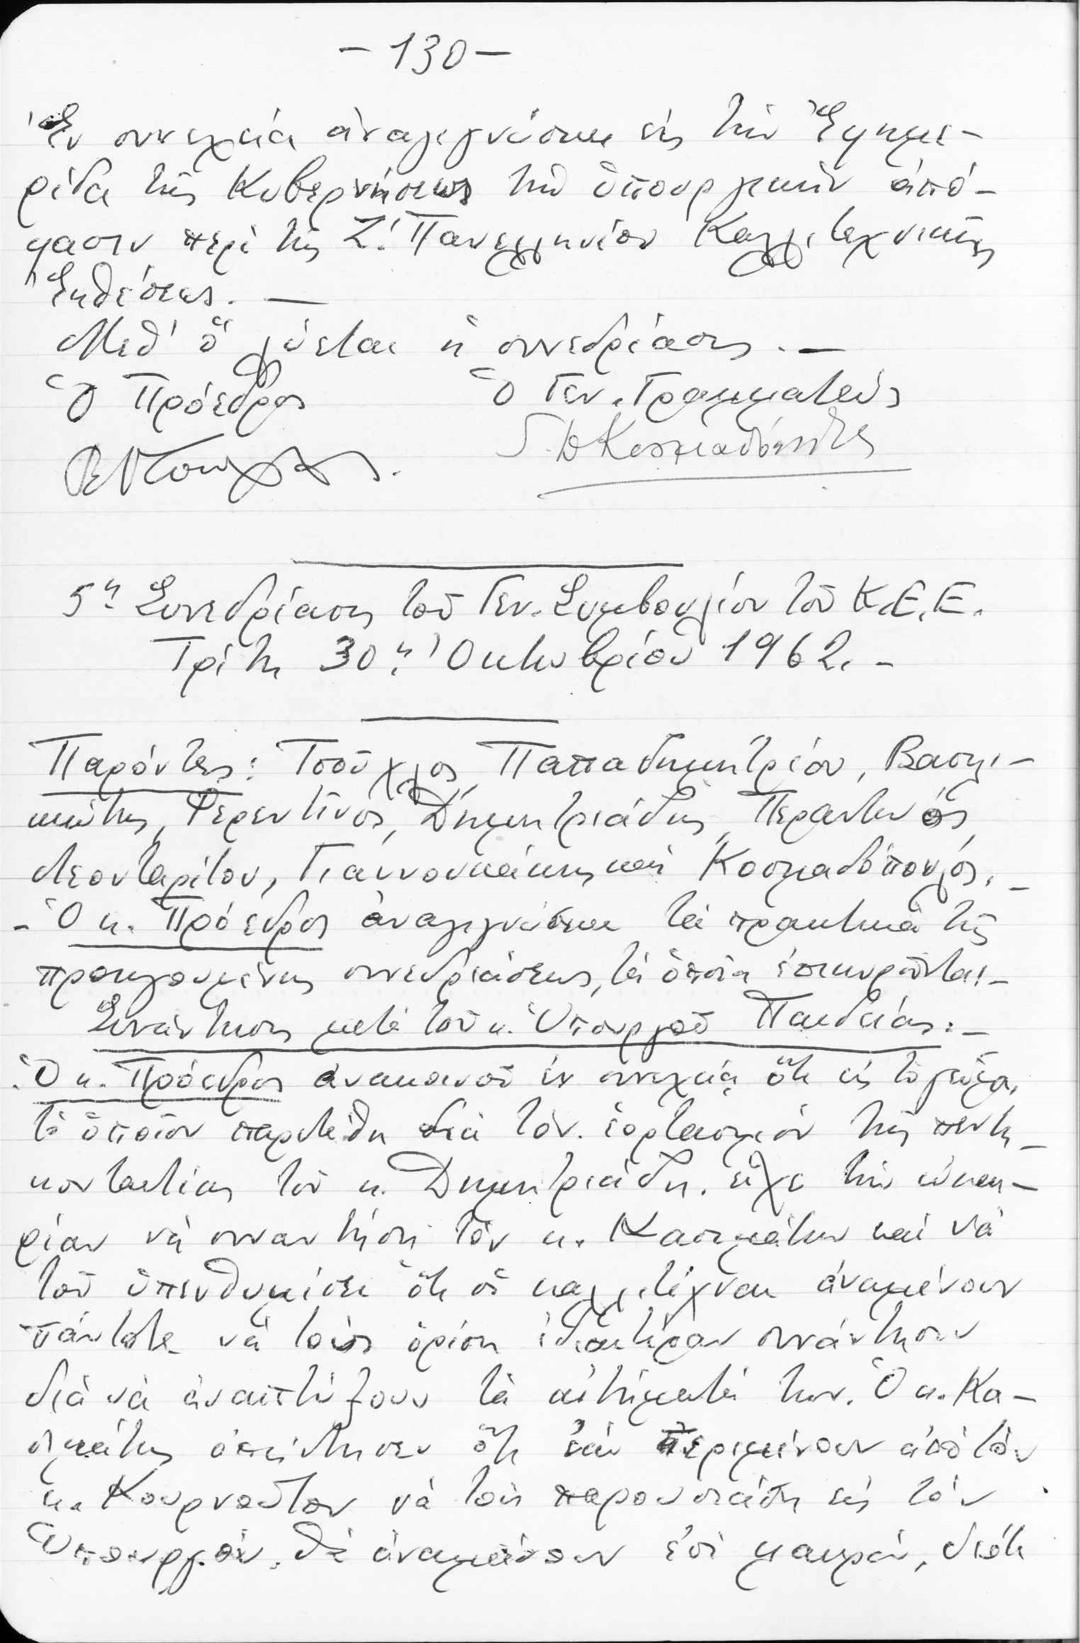 - 130 -
Ἐν συνεχείᾳ ἀναγιγνώσκει εἰς τὴν Ἐφημε-
ρίδα τῆς Κυβερνήσεως τὴν ὑπουργικὴν ἀπό-
φασιν περὶ τῆς Ζ! Πανελληνίου Καλλιτεχνικῆς
Ἐκθέσεως. —
Μεθ' ὃ λύεται ἡ συνεδρίασις. —
Ὁ Πρόεδρος Ὁ Γεν. Γραμματεύς
Κοσμαδόπουλος
5η Συνεδρίασις τοῦ Γεν. Συμβουλίου τοῦ Κ.Ε.Ε.
Τρίτη 30η Ὀκτωβρίου 1962. -
Παρόντες: Τσοῦχλος, Παπαδημητρίου, Βασιλι-
κιώτης, Φερεντῖνος, Δημητριάδης, Περαντινός,
Λεονταρίτου, Γιαννουκάκης καὶ Κοσμαδόπουλος. -
- Ὁ κ. Πρόεδρος ἀναγιγνώσκει τὰ πρακτικὰ τῆς
προηγουμένης συνεδριάσεως, τὰ ὁποῖα ἐπικυροῦνται. -
Συνάντησις μετὰ τοῦ κ. Ὑπουργοῦ Παιδείας: -
Ὁ κ. Πρόεδρος ἀνακοινοῖ ἐν συνεχείᾳ ὅτι εἰς τὸ γεῦμα,
τὸ ὁποῖον παρετέθη διὰ τὸν ἑορτασμὸν τῆς πεντη-
κονταετίας τοῦ κ. Δημητριάδη, εἶχε τὴν εὐκαι-
ρίαν νὰ συναντήσῃ τὸν κ. Κασιμάτην καὶ νὰ
τοῦ ὑπενθυμίσει ὅτι οἱ καλλιτέχναι ἀναμένουν
πάντοτε νὰ τοὺς ὁρίσῃ ἰδιαιτέραν συνάντησιν
διὰ νὰ ἀναπτύξουν τὰ αἰτήματά των. Ὁ κ. Κα-
σιμάτης ἀπήντησεν ὅτι ἐὰν περιμένουν ἀπὸ τὸν
κ. Κουρνοῦτον νὰ τοὺς παρουσιάσῃ εἰς τὸν
Ὑπουργόν, θὰ ἀναμείνουν ἐπὶ μακρόν, διότι